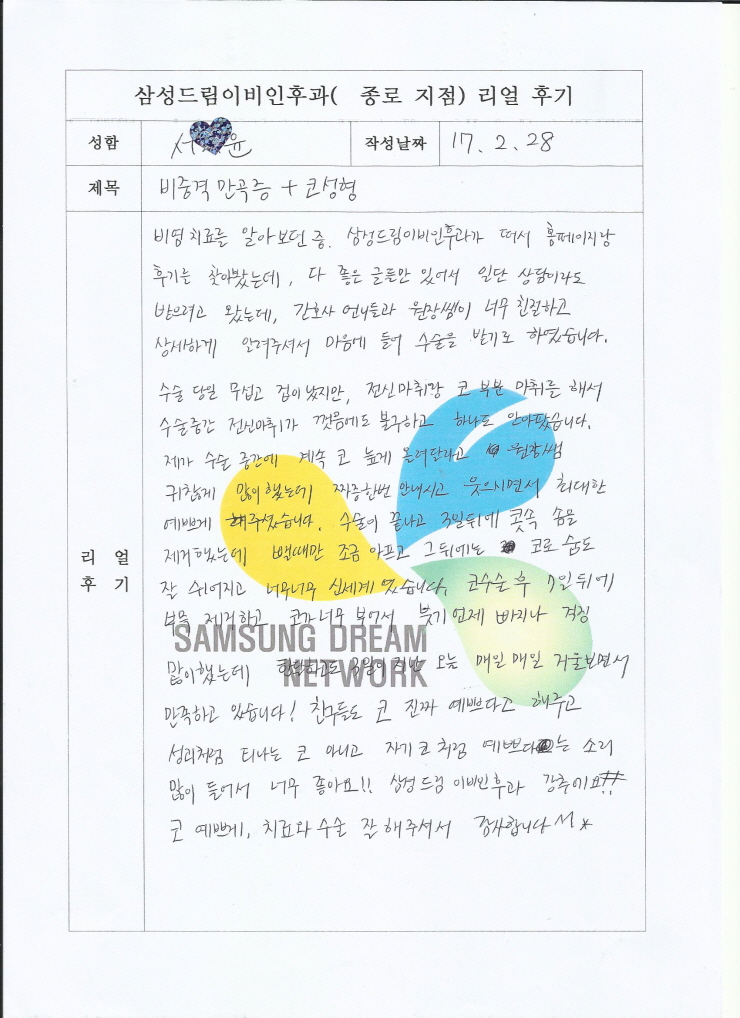 삼성드림이비인후과( 종로 지점) 리얼 후기
성함 서 윤 작성날짜 17. 2. 28
제목 비중격 만곡증 + 코성형
비염치료를 알아보던 중. 삼성드림이비인후과가 떠서 홈페이지랑
후기를 찾아봤는데, 다 좋은 글들만 있어서 일단 상담이라도
받으려고 왔는데, 간호사 언니들과 원장쌤이 너무 친절하고
상세하게 알려주셔서 마음에 들어 수술을 받기로 하였습니다.
수술 당일 무섭고 겁이 났지만, 전신마취랑 코 부분 마취를 해서
수술중간 전신마취가 깼음에도 불구하고 하나도 안아팠습니다.
제가 수술 중간에 계속 코 높게 올려달라고 원장쌤
귀찮게 많이했는데 짜증한번 안내시고 웃으시면서 최대한
예쁘게 해주셨습니다. 수술이 끝나고 3일뒤에 콧속 솜을
제거했는데 뺄때만 조금 아프고 그뒤에는 코로 숨도
잘 쉬어지고 너무너무 신세계였습니다. 코수술 후 7일뒤에
부목 제거하고 코가너무 부어서 붓기언제 빠지나 걱정
많이했는데 한달하고도 3일이 지난 오늘 매일매일 거울보면서
만족하고 있습니다! 친구들도 코 진짜 예쁘다고 해주고
성괴처럼 티나는 코 아니고 자기코처럼 예쁘다는 소리
많이 들어서 너무 좋아요!! 삼성드림이비인후과 강추에요!!
코 예쁘게, 치료와 수술 잘해주셔서 감사합니다
리 얼
후 기
SAMSUNG DREAM
NETWORK